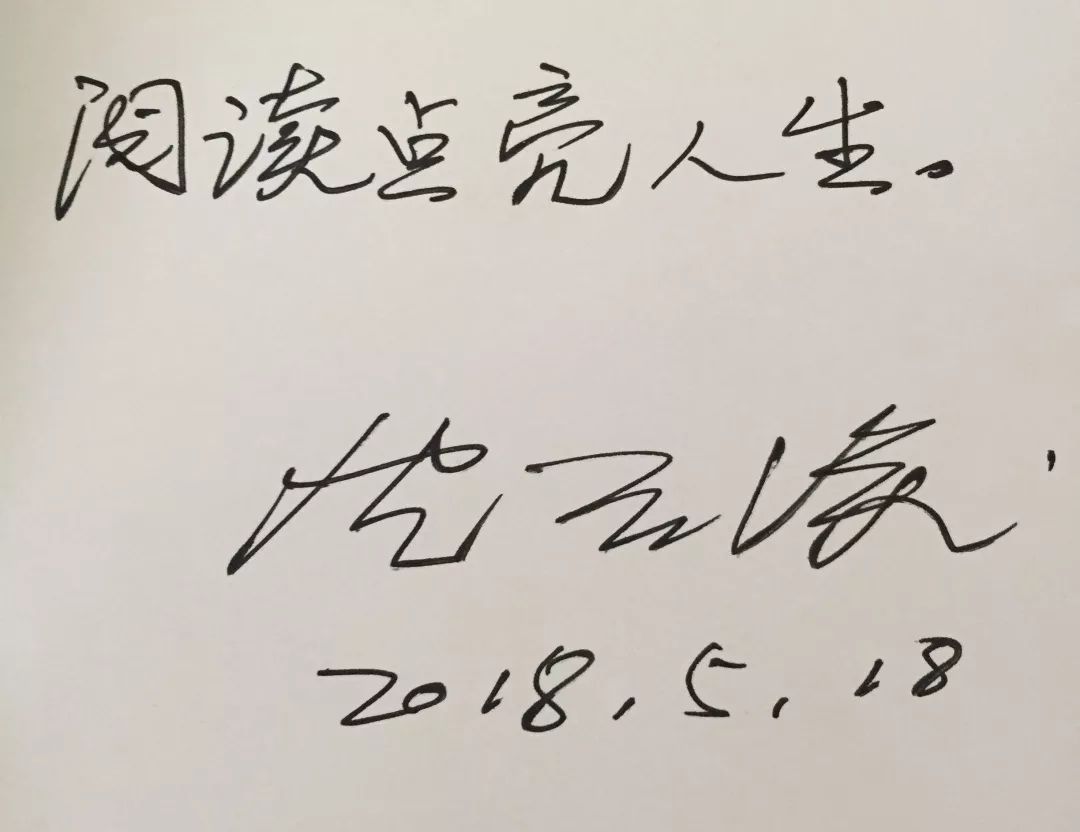 阅读点亮人生。
2018.5.18